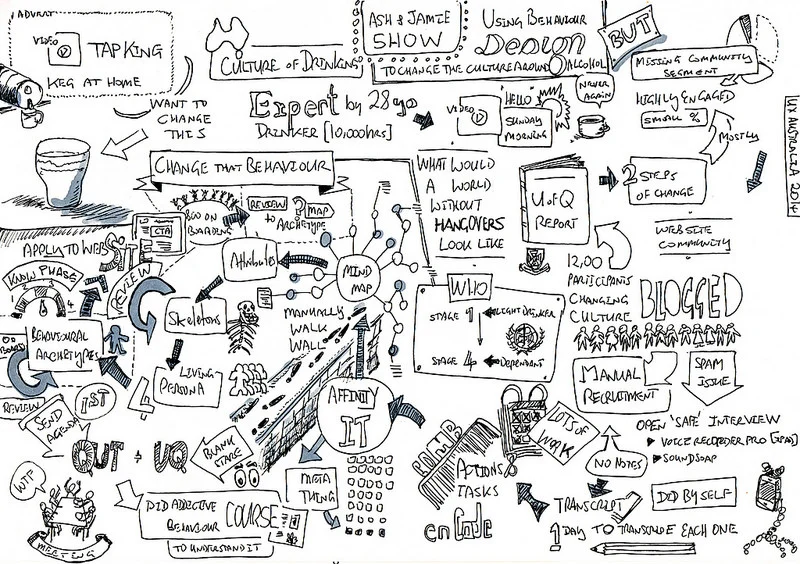 ADVERT
VIDEO
TAP KING
KEG AT HOME
WANT TO
CHANGE
THIS
CULTURE OF DRINKING
ASH & JAMIE
SHOW
USING BEHAVIOUR
DESIGN
TO CHANGE THE CULTURE AROUND ALCOHOL
BUT
MISSING COMMUNITY
SEGMENT
HIGHLY ENGAGED
SMALL %
MOSTLY
UX AUSTRALIA 2014
Expert by 28 yo
DRINKER [10,000hrs]
VIDEO
HELLO
SUNDAY
MORNING
NEVER
AGAIN
CHANGE THAT BEHAVIOUR
WHAT WOULD
A WORLD
WITHOUT
HANGOVERS
LOOK LIKE
U of Q
REPORT
2 STEPS
OF CHANGE
WEBSITE
COMMUNITY
1200
PARTICIPANTS
CHANGING
CULTURE
BLOGGED
CTA
ON
BOARDING
REVIEW
to
ARCHETYPE
? MAP
APPLY TO WEBSITE
REVIEW
KNOW PHASE
4
BEHAVIOURAL
ARCHETYPES
BOARD
REVIEW
Attributes
MIND
MAP
Skeletons
MANUALLY
WALK
WALL
4
LIVING
PERSONA
WHO
STAGE 1
LIGHT DRINKER
STAGE 4
DEPENDANT
MANUAL
RECRUITMENT
SPAM
ISSUE
SEND
AGENDA
1ST
QUT & UQ
BLANK
STARE
AFFINITY
IT
META
THING
WTF
MEETING
DID ADDICTIVE
BEHAVIOUR
COURSE
TO UNDERSTAND IT
ACTIONS
TASKS
enCode
LOTS OF
WORK
NO NOTES
OPEN 'SAFE' INTERVIEW
VOICE RECORDER PRO (iPAD)
SOUNDSOAP
TRANSCRIPT
DID BY SELF
1 DAY TO TRANSCRIBE EACH ONE